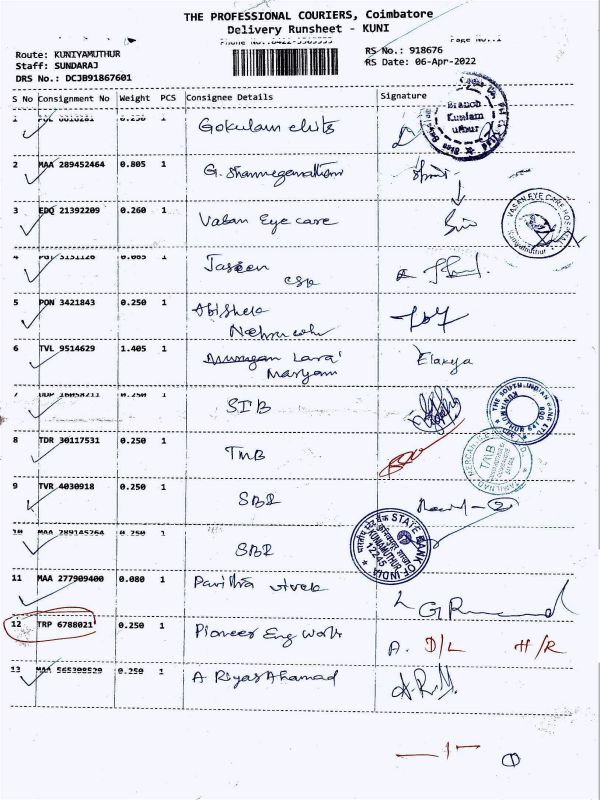 THE PROFESSIONAL COURIERS, Coimbatore
Delivery Runsheet - KUNI
Route: KUNIYAMUTHUR
Staff: SUNDARAJ
DRS No.: DCJB91867601
Page No.:1
RS No.: 918676
RS Date: 06-Apr-2022
S No Consignment No Weight PCS Consignee Details Signature
1 0.250 1 Gokulam chits
Branch Kuniam uthur
2 MAA 289452464 0.805 1
3 EDQ 21392209 0.260 1 Vasan Eye care
VASAN EYE CARE HOSPITAL Kuniyamuthur
4 0.085 1 Jaseen
5 PON 3421843 0.250 1 Abishek
6 TVL 9514629 1.405 1
Maryam Elakya
7 0.250 1 SIB
THE SOUTH INDIAN BANK LTD.
8 TDR 30117531 0.250 1 TMB
TMB
9 TVR 4030918 0.250 1 SBI
10 MAA 289145264 0.250 1 SBI
STATE BANK OF INDIA भारतीय स्टेट बैंक KUNIAMUTHUR 12245
11 MAA 277909400 0.080 1 Pavithra vivek
12 TRP 6788021 0.250 1 Pioneer Eng Work A. D/L H/R
13 MAA 565308529 0.250 1 A Riyas Ahamad A.R.
— 1 — 1